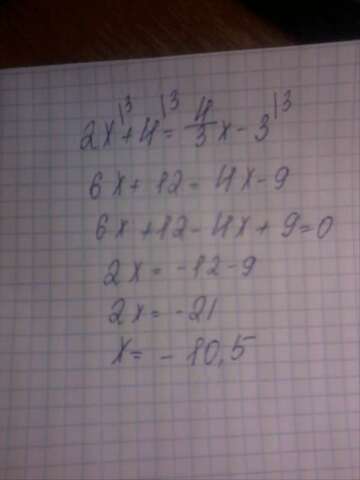 2x|³ + 4|³ = 4/3 x - 3|³
6x + 12 = 4x - 9
6x + 12 - 4x + 9 = 0
2x = -12 - 9
2x = -21
x = -10,5